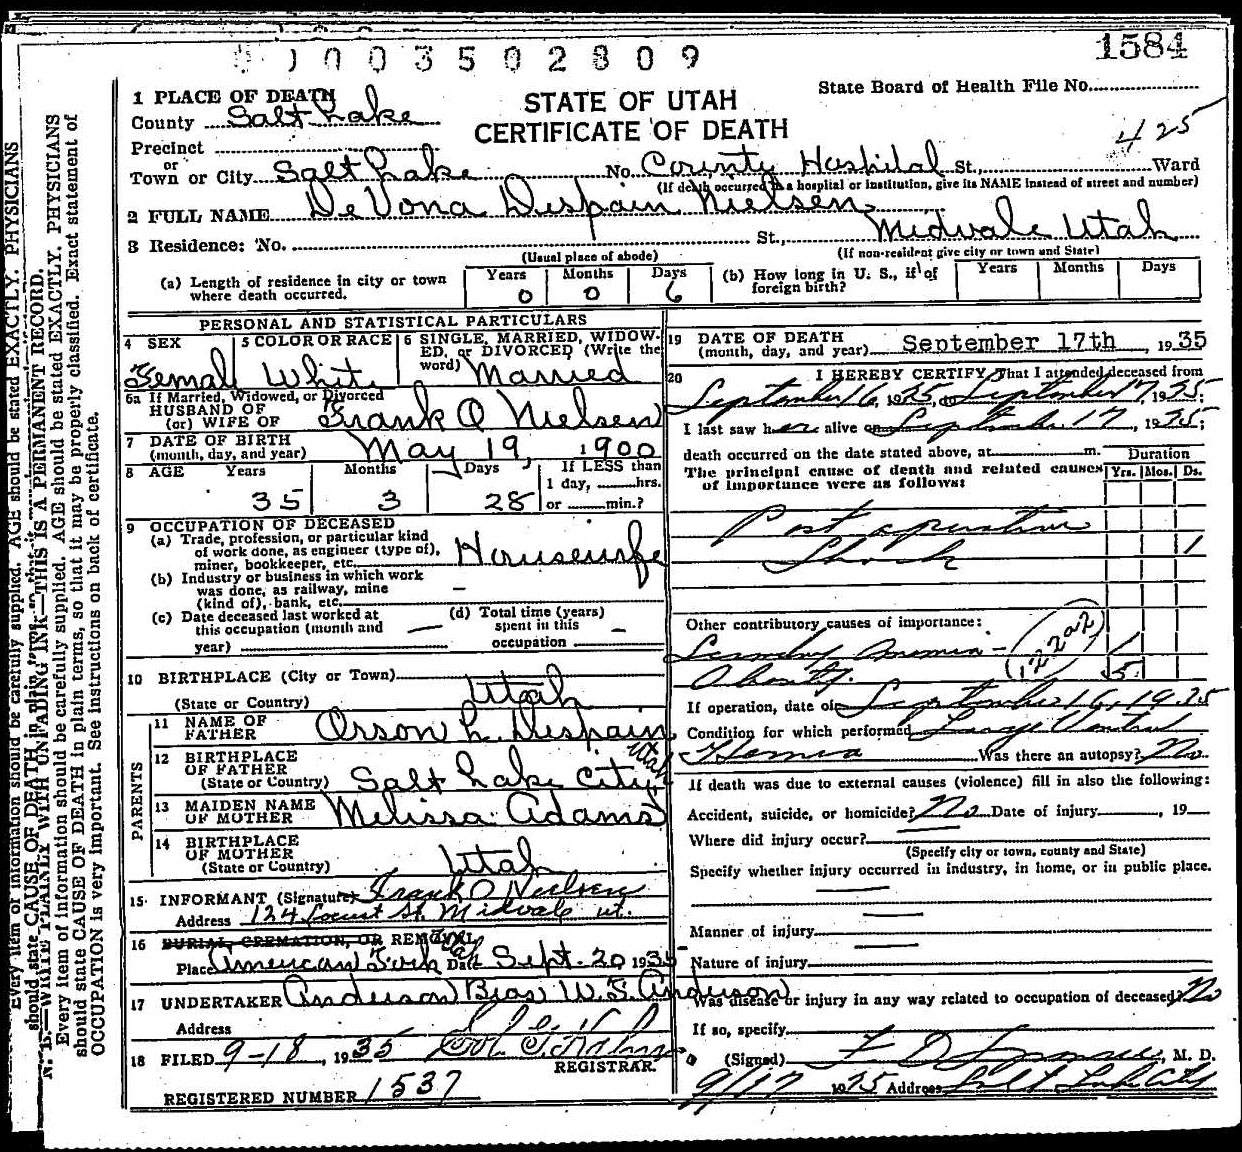 1003502809
1584
1 PLACE OF DEATH
STATE OF UTAH
CERTIFICATE OF DEATH
State Board of Health File No.
County Salt Lake
425
Precinct
or
Town or City Salt Lake No. County Hospital St., Ward
(If death occurred in a hospital or institution, give its NAME instead of street and number)
2 FULL NAME DeVona Despain Nielsen
3 Residence: No. St., Midvale Utah
(Usual place of abode) (If non-resident give city or town and State)
(a) Length of residence in city or town where death occurred. Years 0 Months 0 Days 6
(b) How long in U. S., if of foreign birth? Years Months Days
PERSONAL AND STATISTICAL PARTICULARS
4 SEX Female
5 COLOR OR RACE White
6 SINGLE, MARRIED, WIDOWED, or DIVORCED (Write the word) Married
6a If Married, Widowed, or Divorced
HUSBAND OF
(or) WIFE OF Frank O Nielsen
7 DATE OF BIRTH
(month, day, and year) May 19, 1900
8 AGE Years 35 Months 3 Days 28
If LESS than
1 day, hrs.
or min.?
9 OCCUPATION OF DECEASED
(a) Trade, profession, or particular kind
of work done, as engineer (type of),
miner, bookkeeper, etc. Housewife
(b) Industry or business in which work
was done, as railway, mine
(kind of), bank, etc. —
(c) Date deceased last worked at
this occupation (month and
year) —
(d) Total time (years)
spent in this
occupation —
10 BIRTHPLACE (City or Town)
(State or Country) Utah
PARENTS
11 NAME OF
FATHER Orson L. Despain
12 BIRTHPLACE
OF FATHER
(State or Country) Salt Lake City, Utah
13 MAIDEN NAME
OF MOTHER Melissa Adams
14 BIRTHPLACE
OF MOTHER
(State or Country) Utah
15 INFORMANT (Signature) Frank O Nielsen
Address 124 Locust St. Midvale Ut.
16 BURIAL, CREMATION, OR REMOVAL
Place American Fork Utah Date Sept. 20, 1935
17 UNDERTAKER Anderson Bros W. S. Anderson
Address
18 FILED 9-18, 1935
REGISTRAR.
REGISTERED NUMBER 1537
19 DATE OF DEATH
(month, day, and year) September 17th, 1935
20 I HEREBY CERTIFY, That I attended deceased from
September 16, 1935, to September 17, 1935;
I last saw her alive on September 17, 1935;
death occurred on the date stated above, at m.
The principal cause of death and related causes
of importance were as follows:
Duration
Yrs. Mos. Ds.
Post operative
Shock 1
Other contributory causes of importance:
Secondary Anemia - (122a2) 1
Obesity. 5
If operation, date of September 16, 1935
Condition for which performed Large Ventral
Hernia Was there an autopsy? No
If death was due to external causes (violence) fill in also the following:
Accident, suicide, or homicide? No Date of injury , 19
Where did injury occur?
(Specify city or town, county and State)
Specify whether injury occurred in industry, in home, or in public place.
Manner of injury
Nature of injury
Was disease or injury in any way related to occupation of deceased? No
If so, specify
(Signed) F D , M. D.
9/17 1935 Address Salt Lake City
N. B.—WRITE PLAINLY WITH UNFADING INK—THIS IS A PERMANENT RECORD.
Every item of information should be carefully supplied. AGE should be stated EXACTLY. PHYSICIANS
should state CAUSE OF DEATH in plain terms, so that it may be properly classified. Exact statement of
OCCUPATION is very important. See instructions on back of certificate.